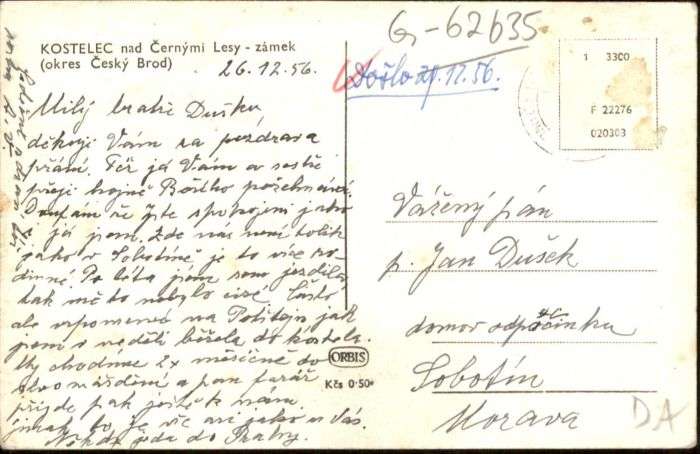 KOSTELEC nad Černými Lesy - zámek
(okres Český Brod)
26.12.56.
G-62635
Došlo 29.12.56.
1 3300
F 22276
020303
Milý bratře Dušku
děkuji Vám za pozdrav a
přání. Též já Vám a sestře
přeji hojně Božího požehnání.
Doufám že jste spokojeni jako
i já jsem. Zde nás není tolik
jako v Sobotíně je to více ro-
dinné. Po léta jsem sem jezdila
tak mě to nebylo cizí. Často
ale vzpomenu na Politzin jak
jsem v neděli běžela do kostela.
My chodíme 2x měsíčně do
shromáždění a pan farář
přijde pak ještě k nám
jinak to je vše asi jako u Vás.
Někdy jedu do Prahy.
Vážený pán
p. Jan Dušek
domov odpočinku
Sobotín
Morava
ORBIS
Kčs 0·50
DA